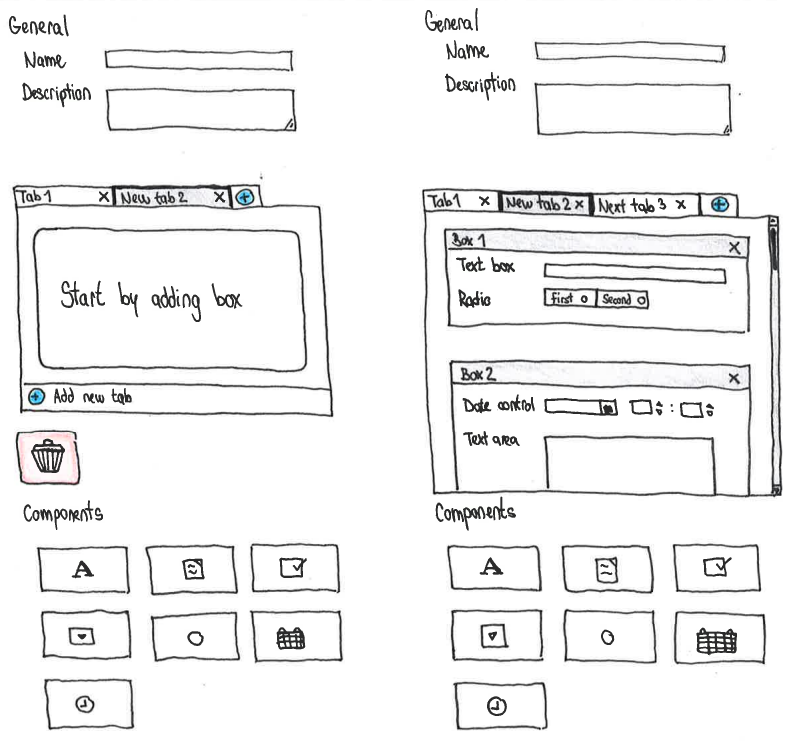 General
Name
Description
Tab 1 X New tab 2 X +
Start by adding box
+ Add new tab
Components
A
General
Name
Description
Tab 1 X New tab 2 X Next tab 3 X +
Box 1 X
Text box
Radio First Second
Box 2 X
Date control :
Text area
Components
A